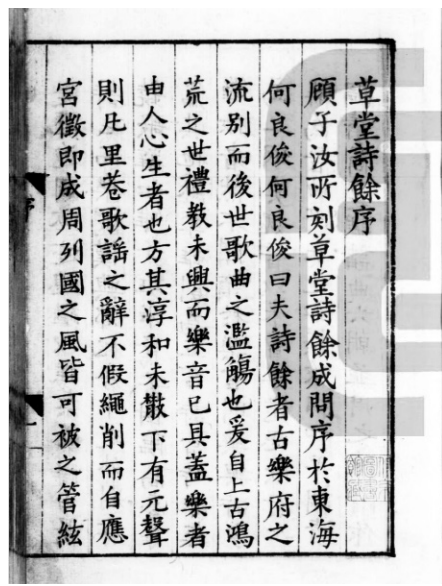 草堂詩餘序
顧子汝所刻草堂詩餘成問序於東海
何良俊何良俊曰夫詩餘者古樂府之
流别而後世歌曲之濫觴也爰自上古鴻
荒之世禮教未興而樂音已具蓋樂者
由人心生者也方其淳和未散下有元聲
則凡里巷歌謡之辭不假繩削而自應
宮徵即成周列國之風皆可被之管絃